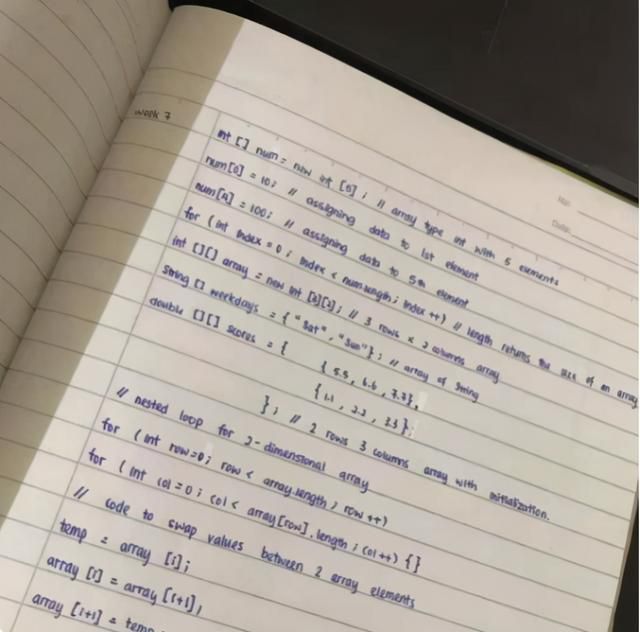 Week 7
No:
Date:
int [] num = new int [5]; // array type int with 5 elements
num[0] = 10; // assigning data to 1st element
num[4] = 100; // assigning data to 5th element
for (int index = 0; index < num.length; index ++) // length returns the size of an array
int [][] array = new int [3][2]; // 3 rows x 2 columns array
String [] weekdays = {"Sat", "Sun"}; // array of String
double [][] scores = {
{5.5, 6.6, 7.7},
{1.1, 2.2, 3.3}
}; // 2 rows 3 columns array with initialization.
// nested loop for 2-dimensional array
for (int row=0; row < array.length; row ++)
for (int col = 0; col < array[row].length; col ++) {}
// code to swap values between 2 array elements
temp = array [i];
array [i] = array [i+1];
array [i+1] = temp